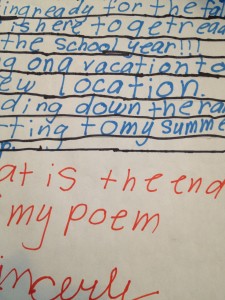 ing ready for the fal
is here to get read
the school year!!!
g on a vacation to
ew location.
ding down the ra
rting to my summe
at is the end
my poem
incerly